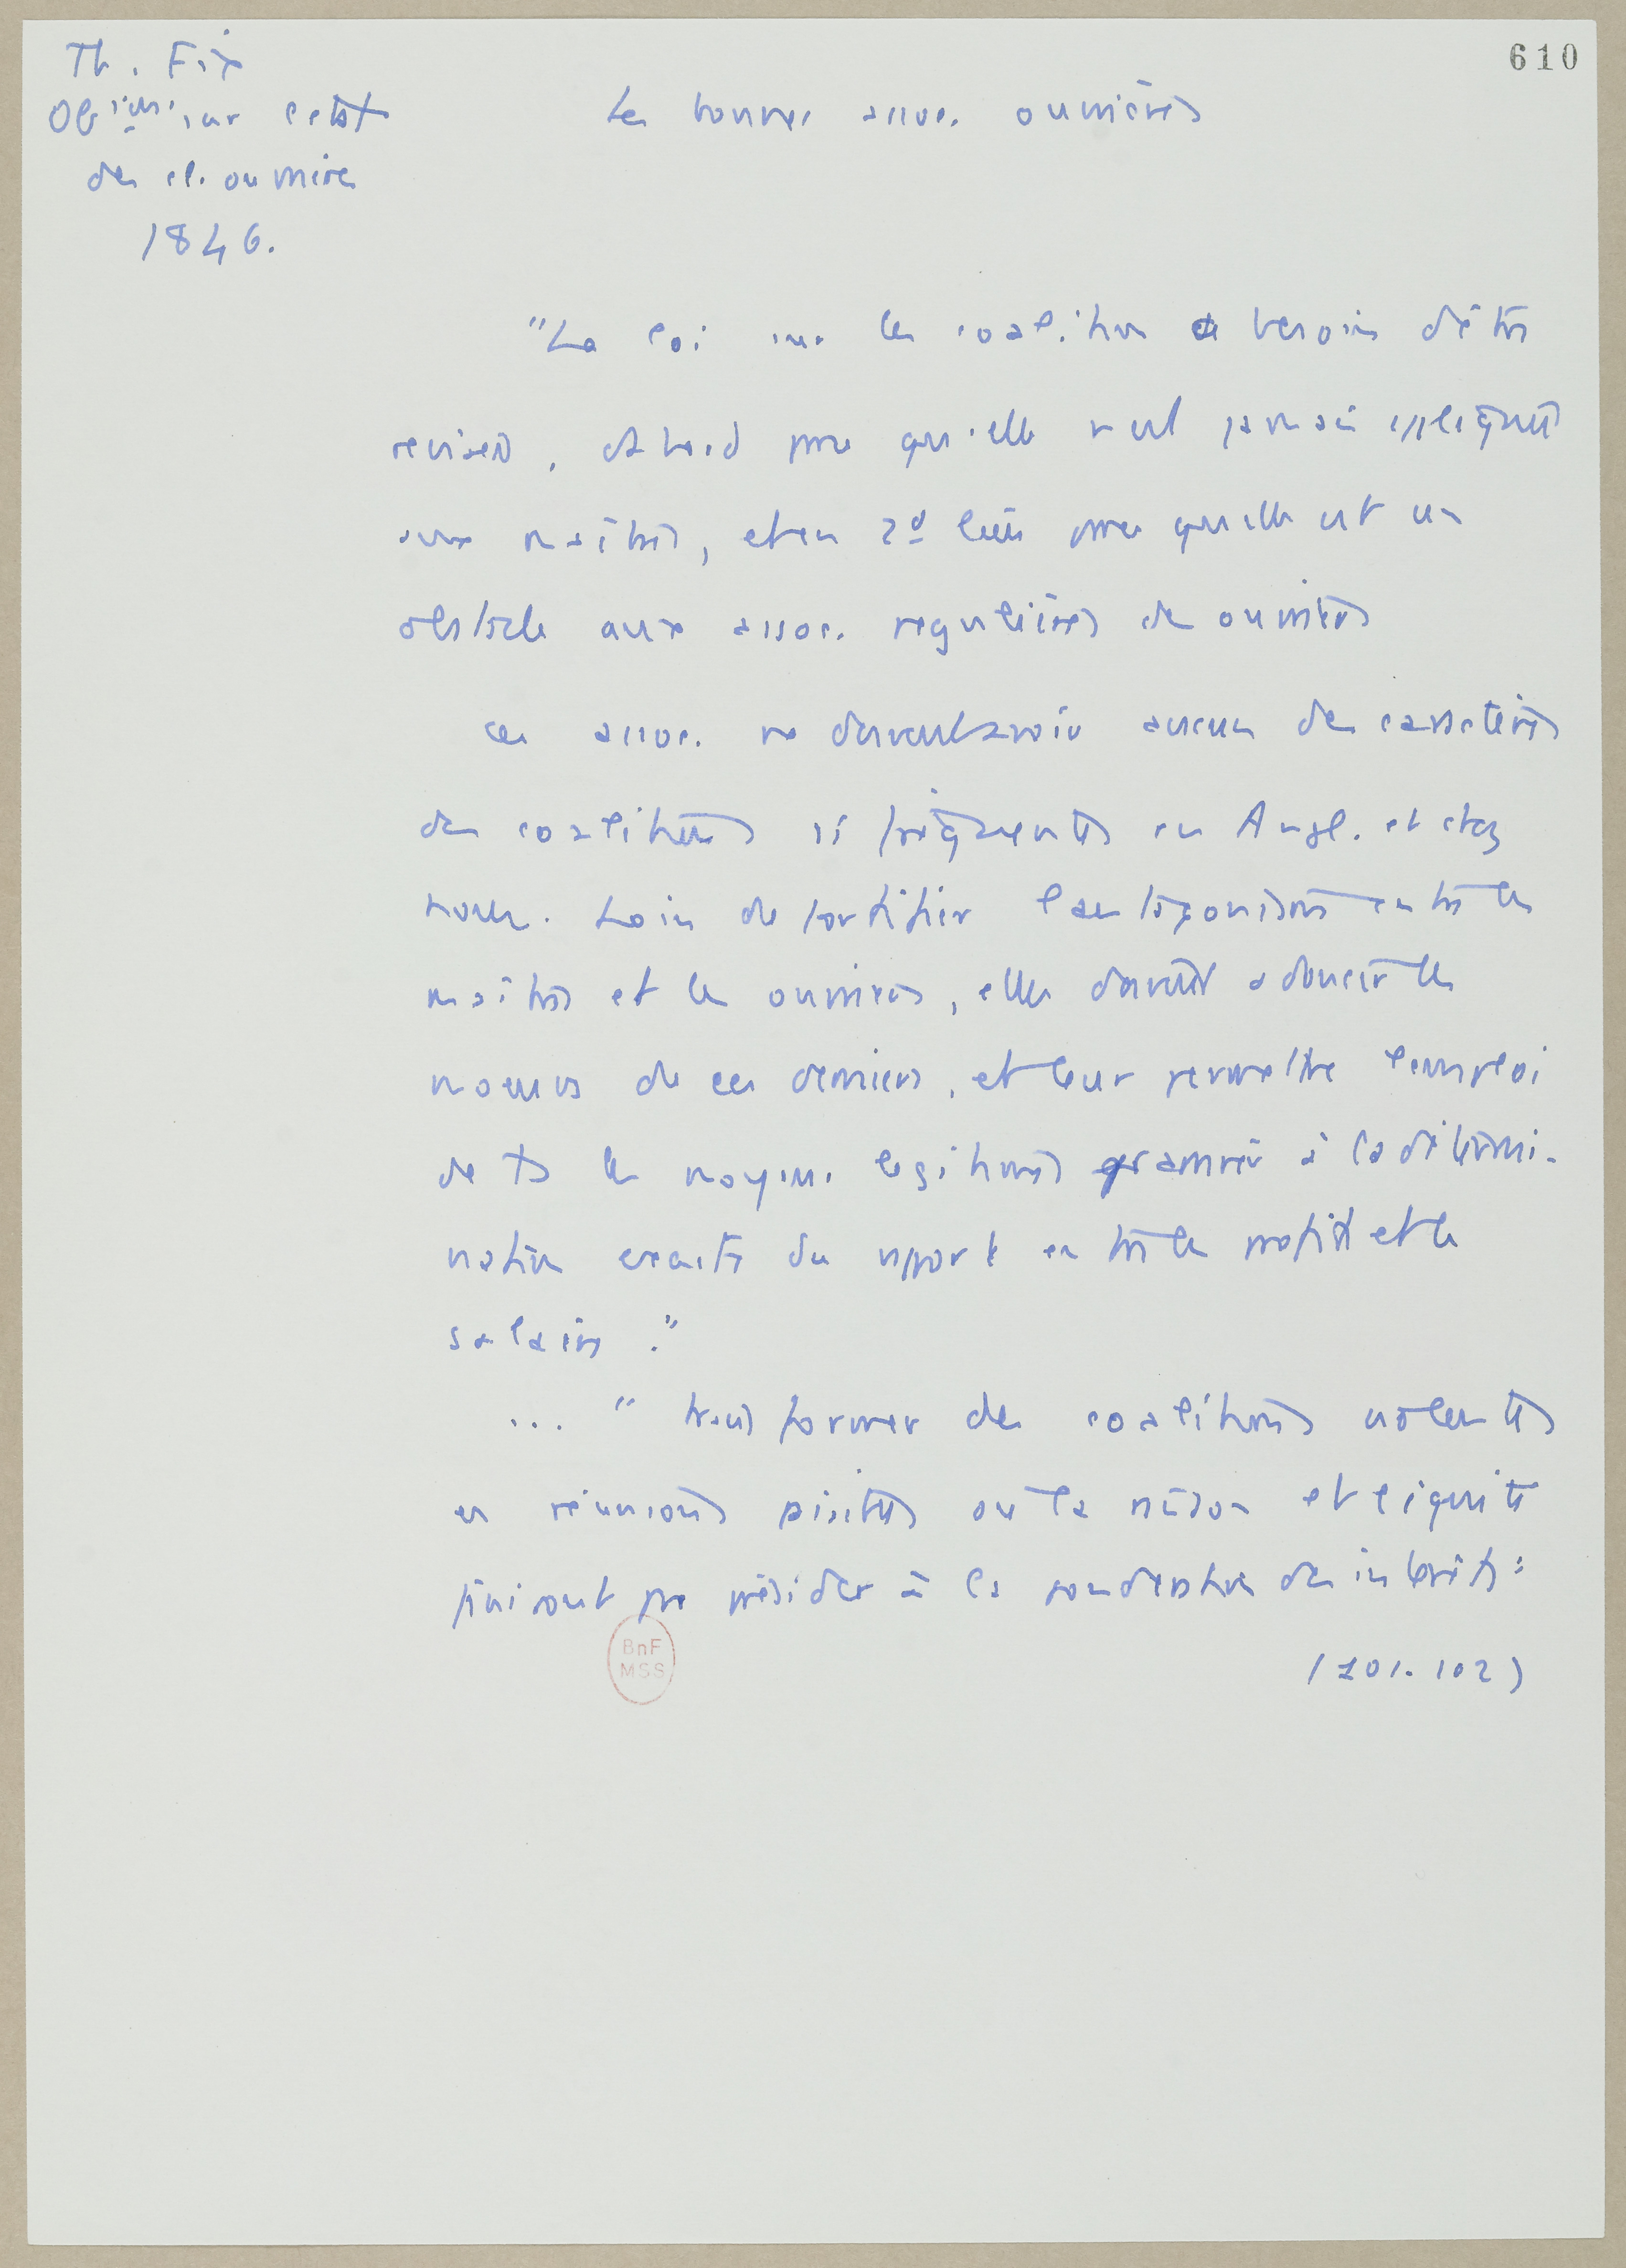 610
Th. Fix
Obs.ions sur l'état
des cl. ouvrières
1846.
Les bonnes assoc. ouvrières
"La loi sur les coalitions a besoin d'être
revisée, d'abord pcq qu'elle n'est jamais appliquée
aux maîtres, et en 2d lieu pcq qu'elle est un
obstacle aux assoc. régulières des ouvriers
Ces assoc. ne devraient avoir aucun des caractères
des coalitions si fréquentes en Angl. et chez
nous. Loin de fortifier l'antagonisme entre les
maîtres et les ouvriers, elles devraient adoucir les
moeurs de ces derniers, et leur permettre l'emploi
de ts les moyens légitimes pr arriver à la détermi-
nation exacte du rapport entre les profits et les
salaires."
... "transformer des coalitions violentes
en réunions paisibles où la raison et l'équité
finiront par présider à la pondération des intérêts:
(101.102)
BnF
MSS